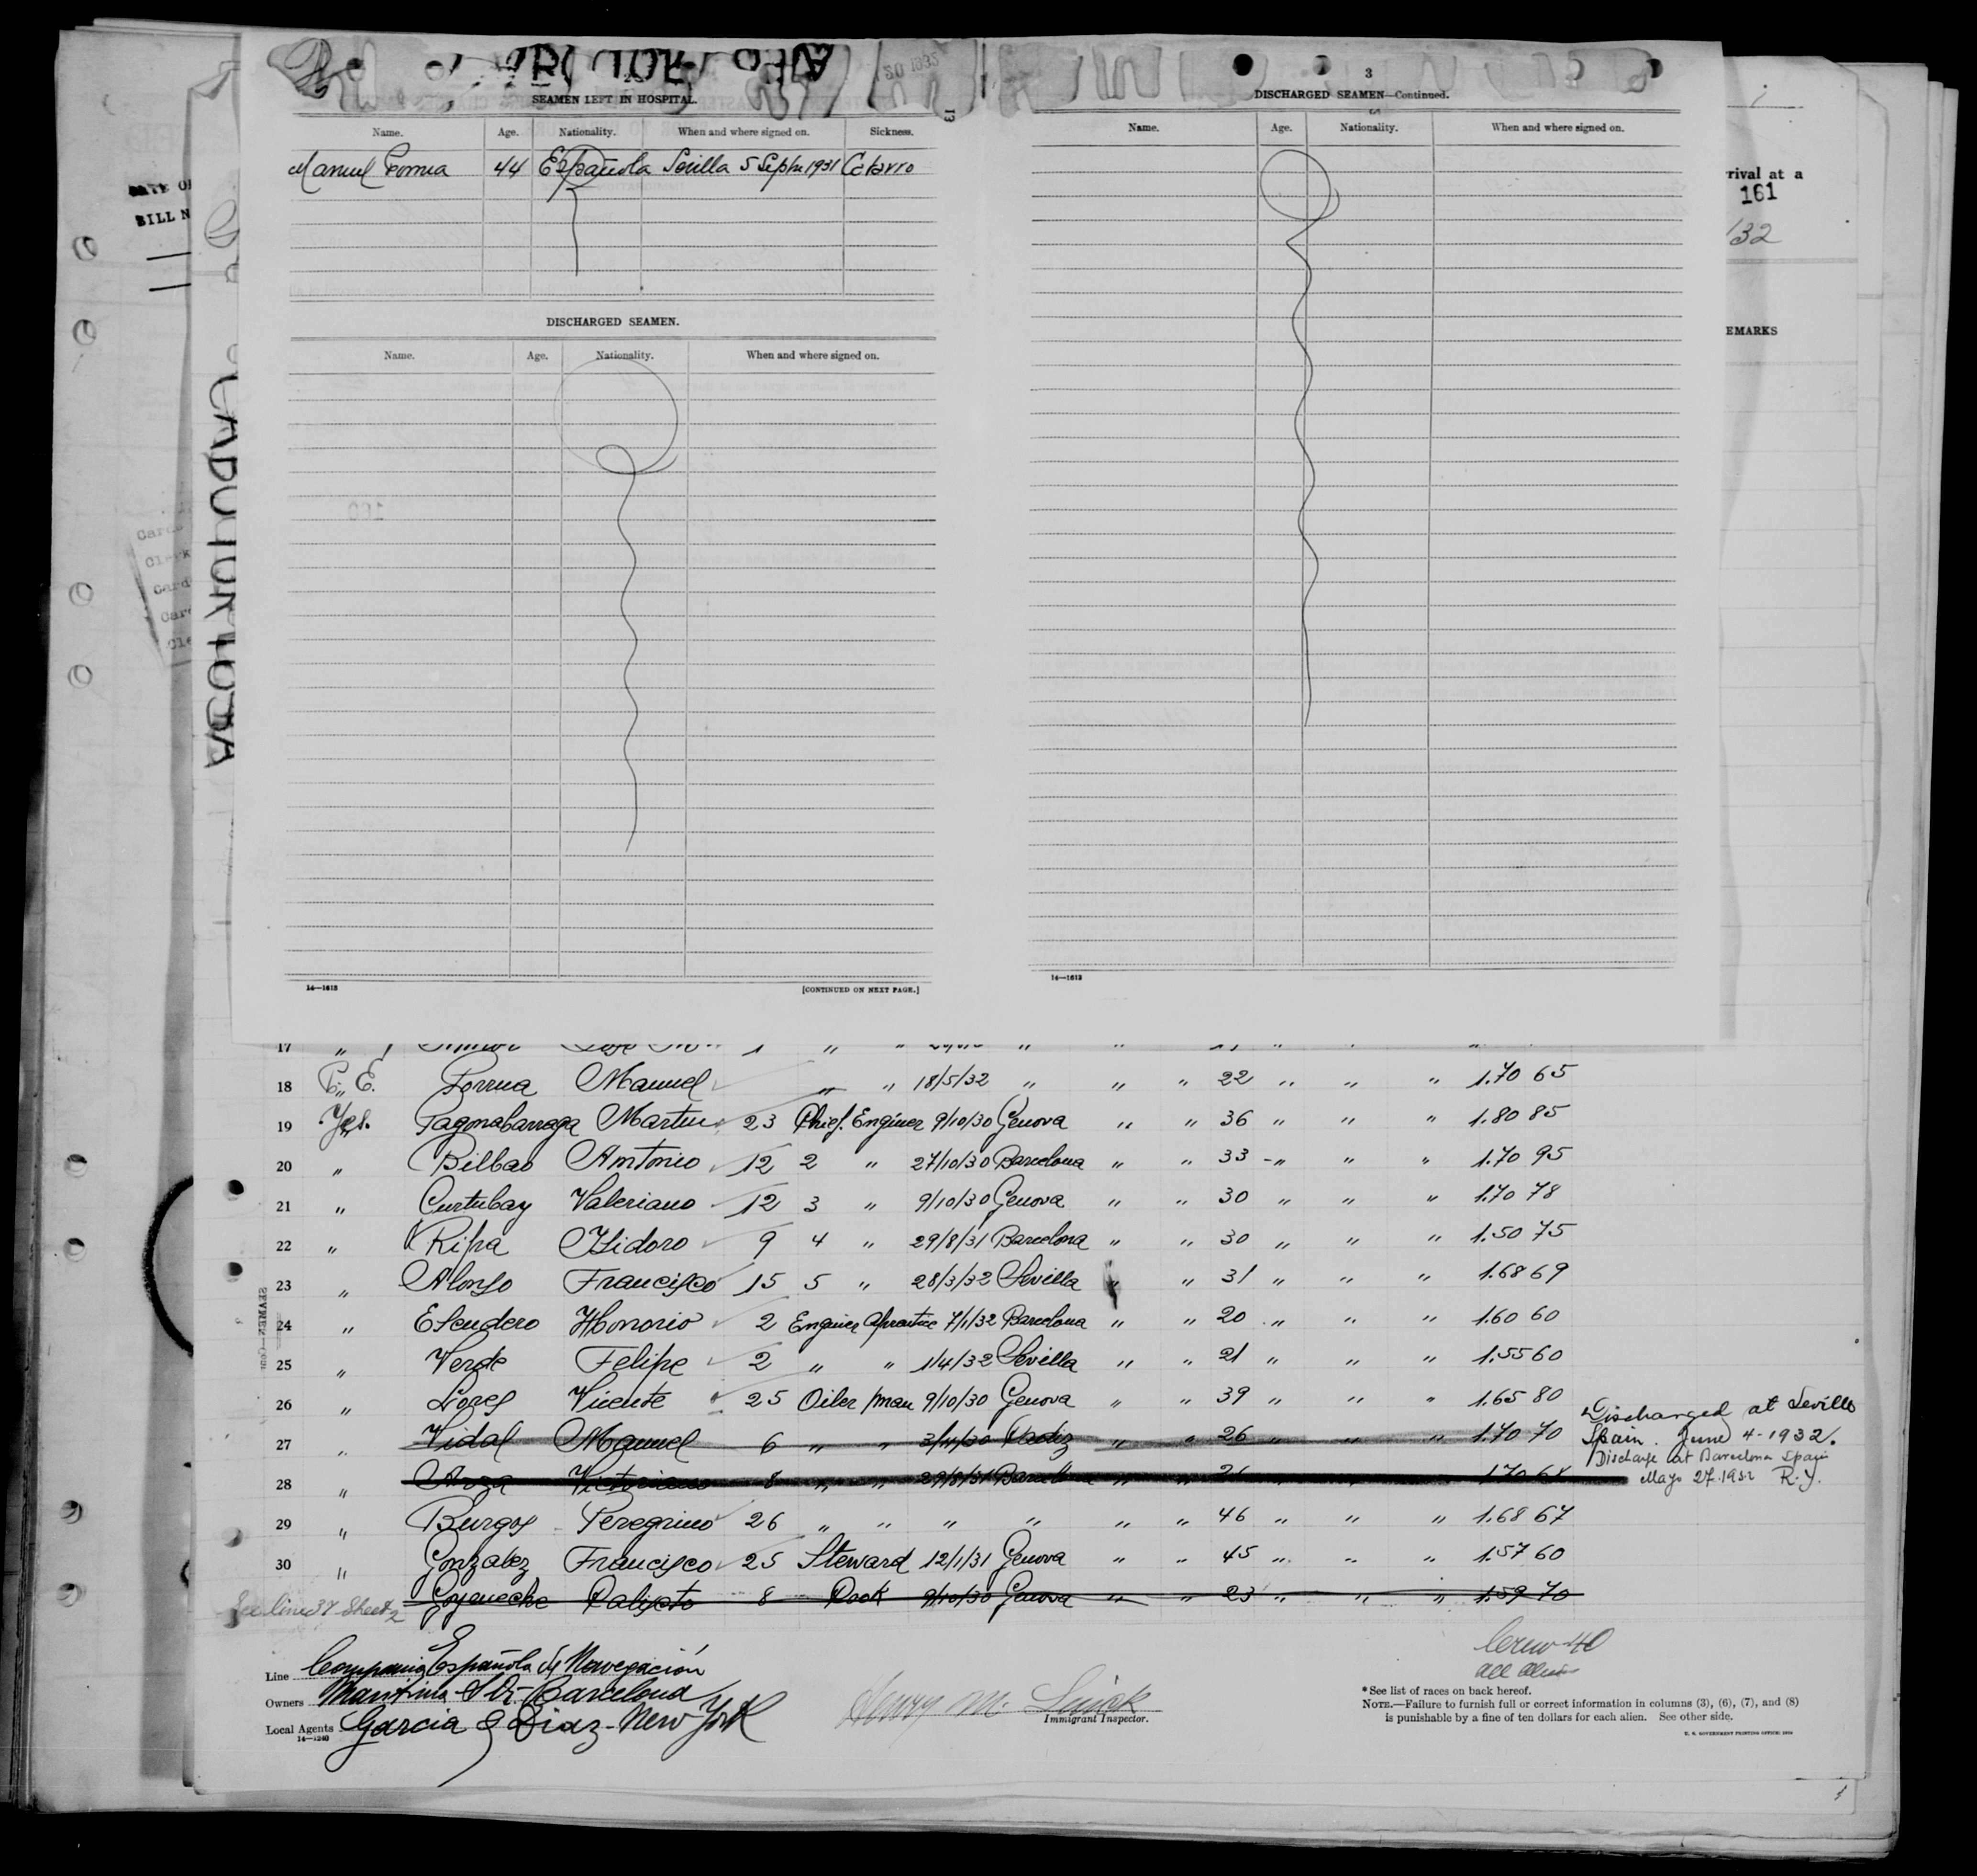 2
SEAMEN LEFT IN HOSPITAL.
Name. Age. Nationality. When and where signed on. Sickness.
Manuel Porrua 44 Española Sevilla 5 Sepbre 1931 Catarro
DISCHARGED SEAMEN.
Name. Age. Nationality. When and where signed on.
14—1613 [CONTINUED ON NEXT PAGE.]
20 1932
13
3
DISCHARGED SEAMEN—Continued.
Name. Age. Nationality. When and where signed on.
14—1613
DATE OF
BILL N
rival at a
161
/32
EMARKS
17 " " " " " " " "
18 P. E. Porrua Manuel " " 18/5/32 " " " 22 " " " 1.70 65
19 Yes. Pagonabarraga Martin 23 Chief. Enginer 9/10/30 Genova " " 36 " " " 1.80 85
20 " Bilbao Antonio 12 2 " 27/10/30 Barcelona " " 33 " " " 1.70 95
21 " Curtubay Valeriano 12 3 " 9/10/30 Genova " " 30 " " " 1.70 78
22 " Ripa Isidoro 9 4 " 29/8/31 Barcelona " " 30 " " " 1.50 75
23 " Alonso Francisco 15 5 " 28/3/32 Sevilla " " 31 " " " 1.68 69
24 " Escudero Honorio 2 Enginer Aprentice 7/1/32 Barcelona " " 20 " " " 1.60 60
25 " Verde Felipe 2 " " 1/4/32 Sevilla " " 21 " " " 1.55 60
26 " Lores Vicente 25 Oiler man 9/10/30 Genova " " 39 " " " 1.65 80
27 " Vidal Manuel 6 " " 3/11/30 Cadiz " " 26 " " " 1.70 70 Discharged at Seville
Spain. June 4-1932.
28 " Victoriano 8 " " 29/8/31 Barcelona " " 26 " " " 1.70 68 Discharge at Barcelona Spain
Mayo 27-1932 R.Y.
29 " Burgos Peregrino 26 " " " " " " 46 " " " 1.68 67
30 " Gonzalez Francisco 25 Steward 12/1/31 Genova " " 45 " " " 1.57 60
See line 37 Sheet 2 Goyeneche Calixto 8 Cook 9/10/30 Genova " " 23 " " " 1.59 70
Crew 40
all aliens
Line Compania Española de Navegación
Owners Maritima S.A. Barcelona
Local Agents Garcia & Diaz - New York
14—1240
Henry M.
Immigrant Inspector.
* See list of races on back hereof.
NOTE.—Failure to furnish full or correct information in columns (3), (6), (7), and (8)
is punishable by a fine of ten dollars for each alien. See other side.
U. S. GOVERNMENT PRINTING OFFICE: 1930